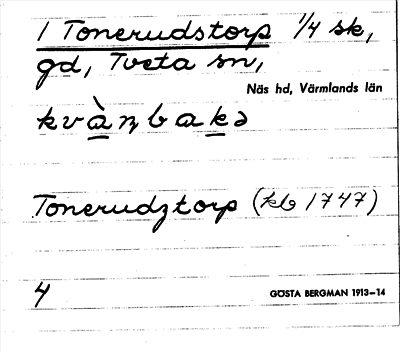 1 Tonerudstorp 1/4 sk,
gd, Tveta sn,
Näs hd, Värmlands län
kvànbakə
Tonerudztorp (kb 1747)
4
GÖSTA BERGMAN 1913–14